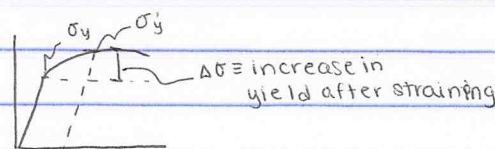 σy σy'
Δσ ≡ increase in
yield after straining